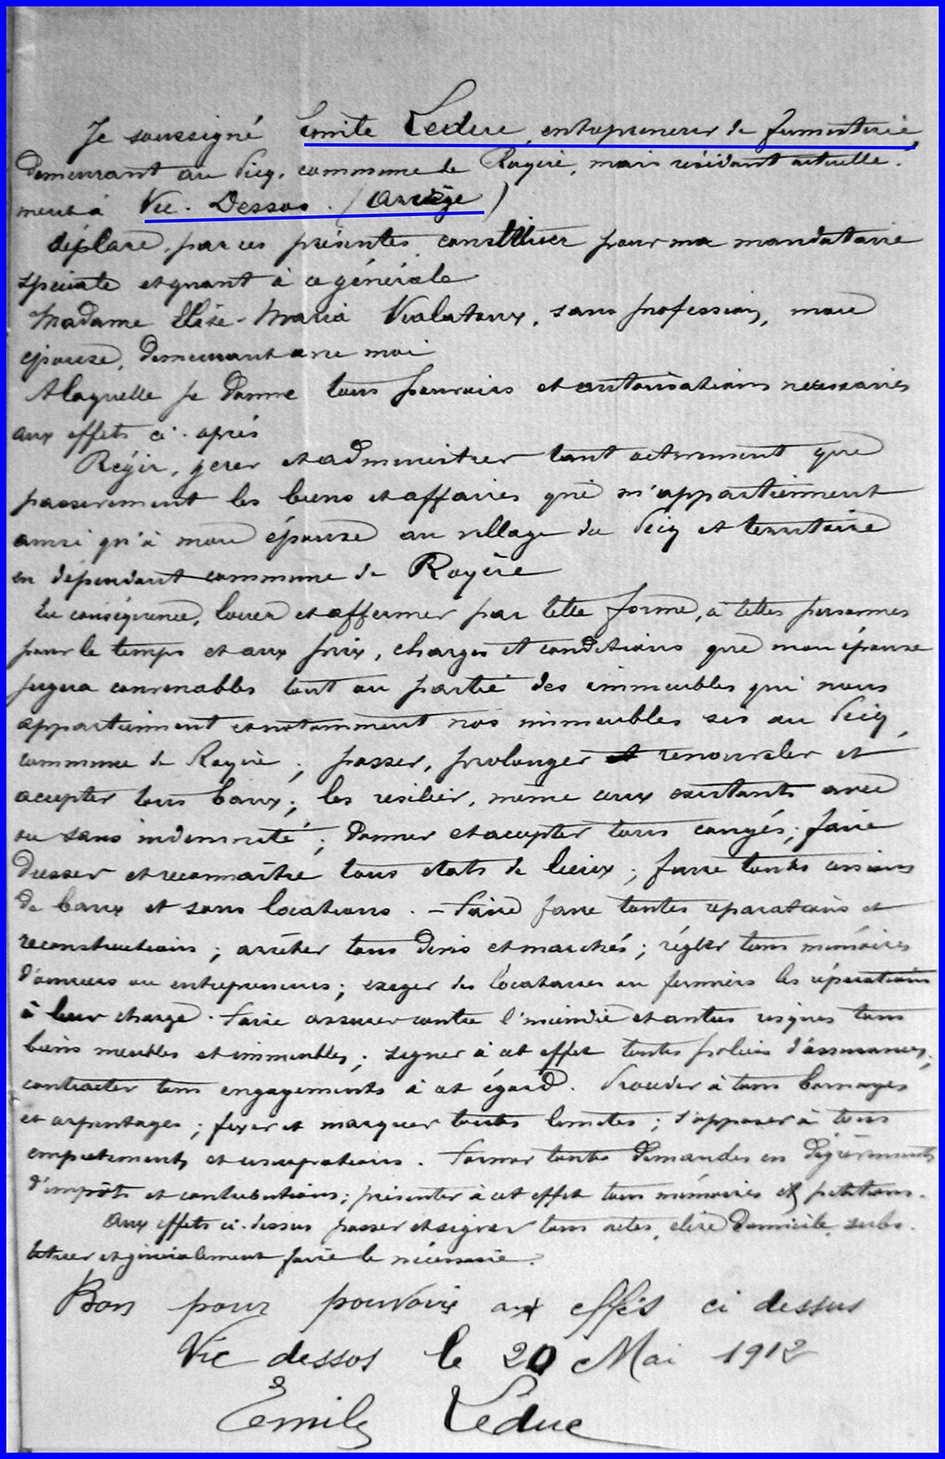 Je soussigné Emile Leduc, entrepreneur de fumisterie,
demeurant au Picq, commune de Royère, mais résidant actuelle-
ment à Vic-Dessos (Ariège)
déclare, par ces présentes constituer pour ma mandataire
spéciale et quant à ce générale
Madame Elise-Maria Vialatoux, sans profession, mon
épouse, demeurant avec moi
A laquelle je donne tous pouvoirs et autorisations nécessaires
aux effets ci-après
Régir, gérer et administrer tant activement que
passivement les biens et affaires qui m'appartiennent
ainsi qu'à mon épouse au village du Picq et territoire
en dépendant commune de Royère
En conséquence, louer et affermer par telle forme, à telles personnes
pour le temps et aux prix, charges et conditions que mon épouse
jugera convenables tout ou partie des immeubles qui nous
appartiennent et notamment nos immeubles sis au Picq,
commune de Royère ; passer, prolonger et renouveler et
accepter tous baux ; les résilier, même ceux existants avec
ou sans indemnité ; donner et accepter tous congés ; faire
dresser et reconnaître tous états de lieux ; faire toutes cessions
de baux et sous locations . - Faire faire toutes réparations et
reconstructions ; arrêter tous devis et marchés ; régler tous mémoires
d'ouvriers ou entrepreneurs ; exiger des locataires ou fermiers les réparations
à leur charge . Faire assurer contre l'incendie et autres risques tous
biens meubles et immeubles ; signer à cet effet toutes polices d'assurances,
contracter tous engagements à cet égard . Procéder à tous bornages
et arpentages ; fixer et marquer toutes limites ; s'opposer à tous
empiètements et usurpations . Former toutes demandes en dégrèvements
d'impôts et contributions ; présenter à cet effet tous mémoires et pétitions .
Aux effets ci-dessus passer et signer tous actes, élire domicile, subs-
tituer et généralement faire le nécessaire .
Bon pour pouvoir aux effés ci dessus
Vic dessos le 20 Mai 1912
Emile Leduc